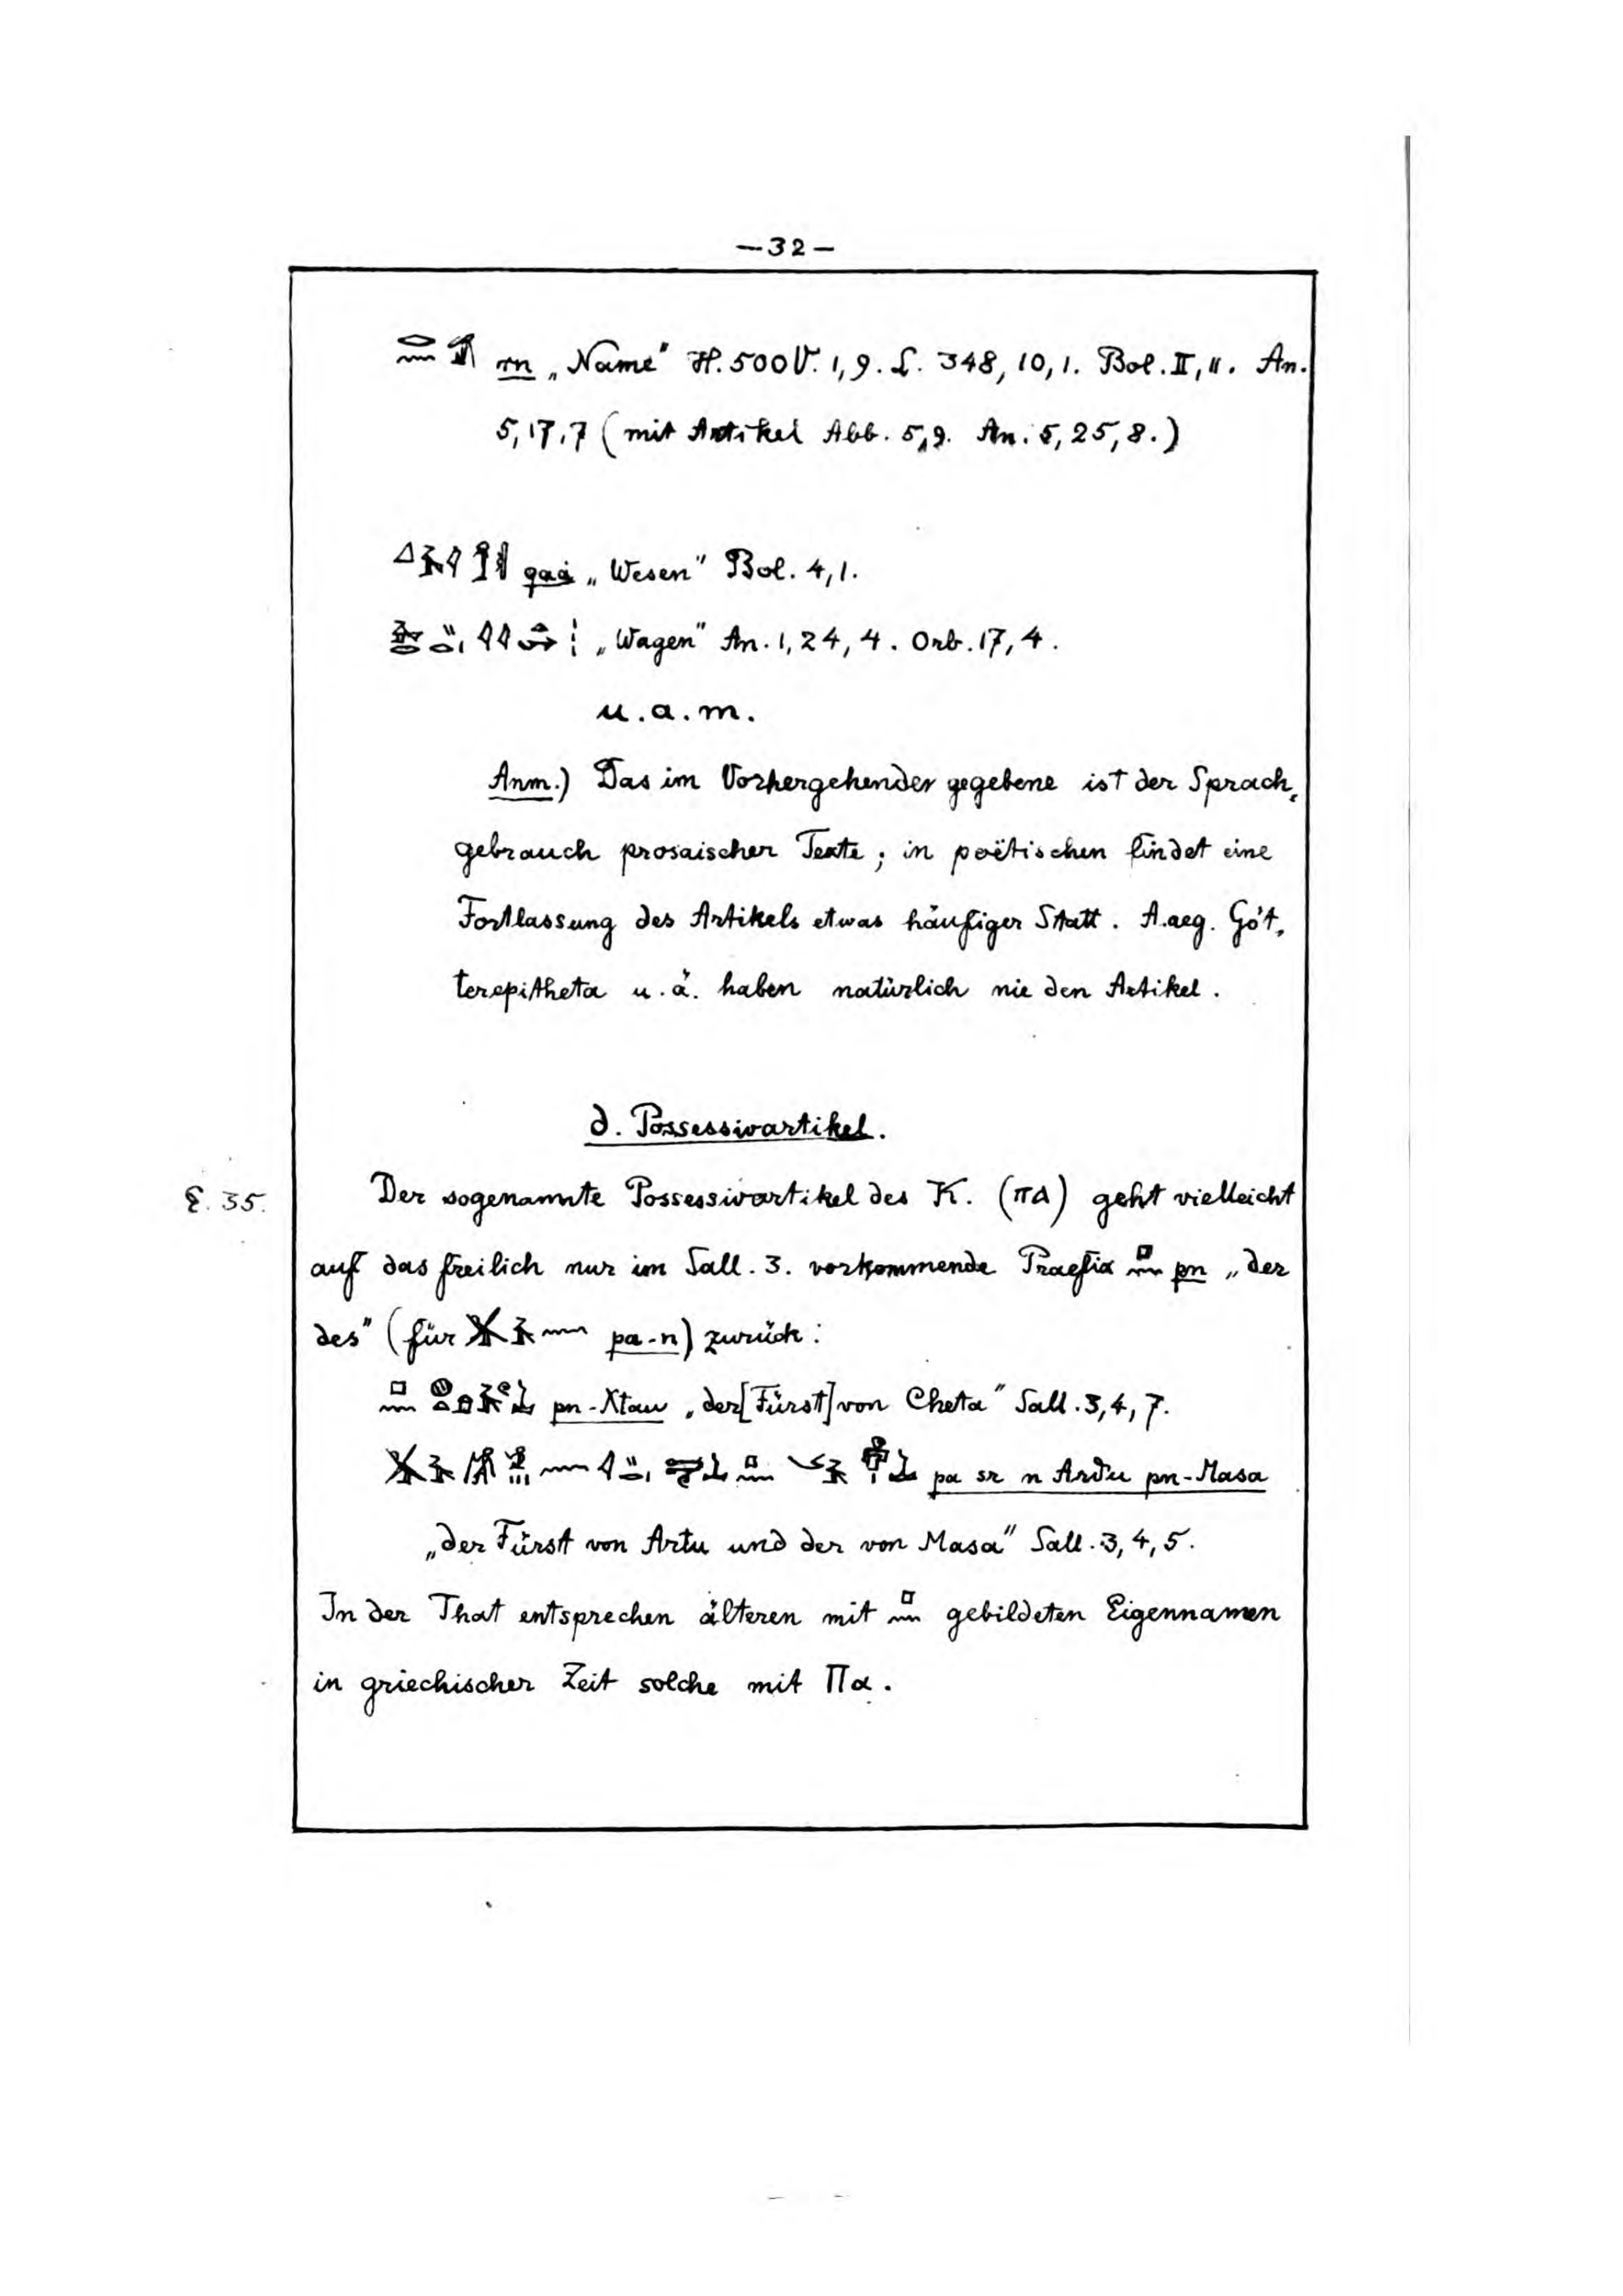 —32—
rn „Name" H. 500 V. 1,9. L. 348, 10, 1. Bol. II, 11. An.
5, 17, 7 (mit Artikel Abb. 5, 9. An. 5, 25, 8.)
qaȧ „Wesen" Bol. 4, 1.
„Wagen" An. 1, 24, 4. Orb. 17, 4.
u. a. m.
Anm.) Das im Vorhergehenden gegebene ist der Sprach-
gebrauch prosaischer Texte; in poëtischen findet eine
Fortlassung des Artikels etwas häufiger Statt. A. aeg. Göt-
terepitheta u. ä. haben natürlich nie den Artikel.
d. Possessivartikel.
§. 35. Der sogenannte Possessivartikel des K. (ⲡⲁ) geht vielleicht
auf das freilich nur im Sall. 3. vorkommende Praefix 𓊪𓈖 pn „der
des" (für 𓅮𓄿𓈖 pa-n) zurück:
pn-Xtau „der [Fürst] von Cheta" Sall. 3, 4, 7.
pa sr n Ardu pn-Masa
„der Fürst von Artu und der von Masa" Sall. 3, 4, 5.
In der That entsprechen älteren mit 𓊪𓈖 gebildeten Eigennamen
in griechischer Zeit solche mit Πα.